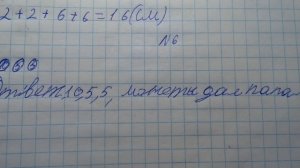 2+2+6+6=16(см)
№6
Ответ:10,5,5, монеты дал папа